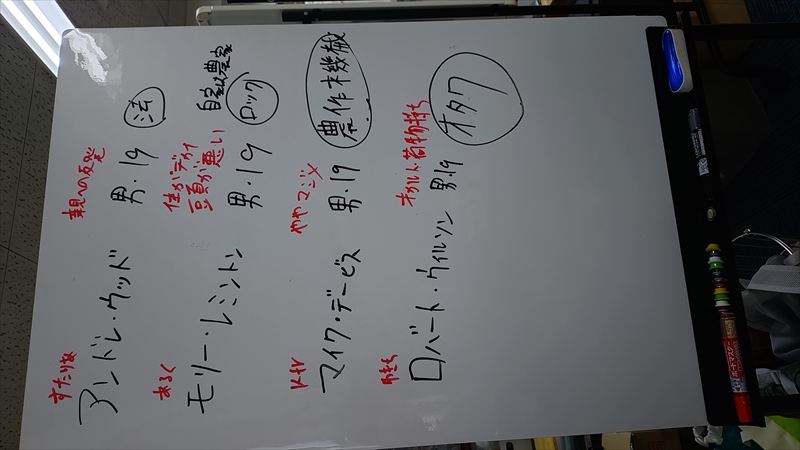 すたりな 親への反発
アンドレ・ウッド 男・19 法
あるく 体がデカイ
頭が悪い 農家
モリー・レミントン 男・19 ロック
ややマジメ
マイク・デービス 男・19 農作機械
オカルト・荷物持ち
ロバート・ウィルソン 男・19 オタク